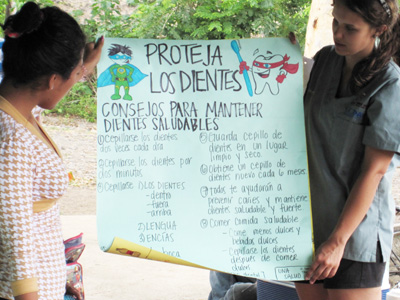 PROTEJA
LOS DIENTES
CONSEJOS PARA MANTENER
DIENTES SALUDABLES
① Cepillarse los dientes
dos veces cada dia
② Cepillarse los dientes por
dos minutos
③ Cepillarse ① LOS DIENTES
- dentro
- fuera
- arriba
② LENGUA
③ ENCÍAS
boca
Guarda cepillo de
dientes en un lugar
limpio y seco.
Obtiene un cepillo de
dientes nuevo cada 6 meses
todo te ayudarán a
prevenir caries y mantiene
dientes saludable y fuerte
Comer comida saludable
- Come menos dulces y
bebidas dulces
- Cepillarse la dientes
despues de comer
dulces
UNA
SALUD